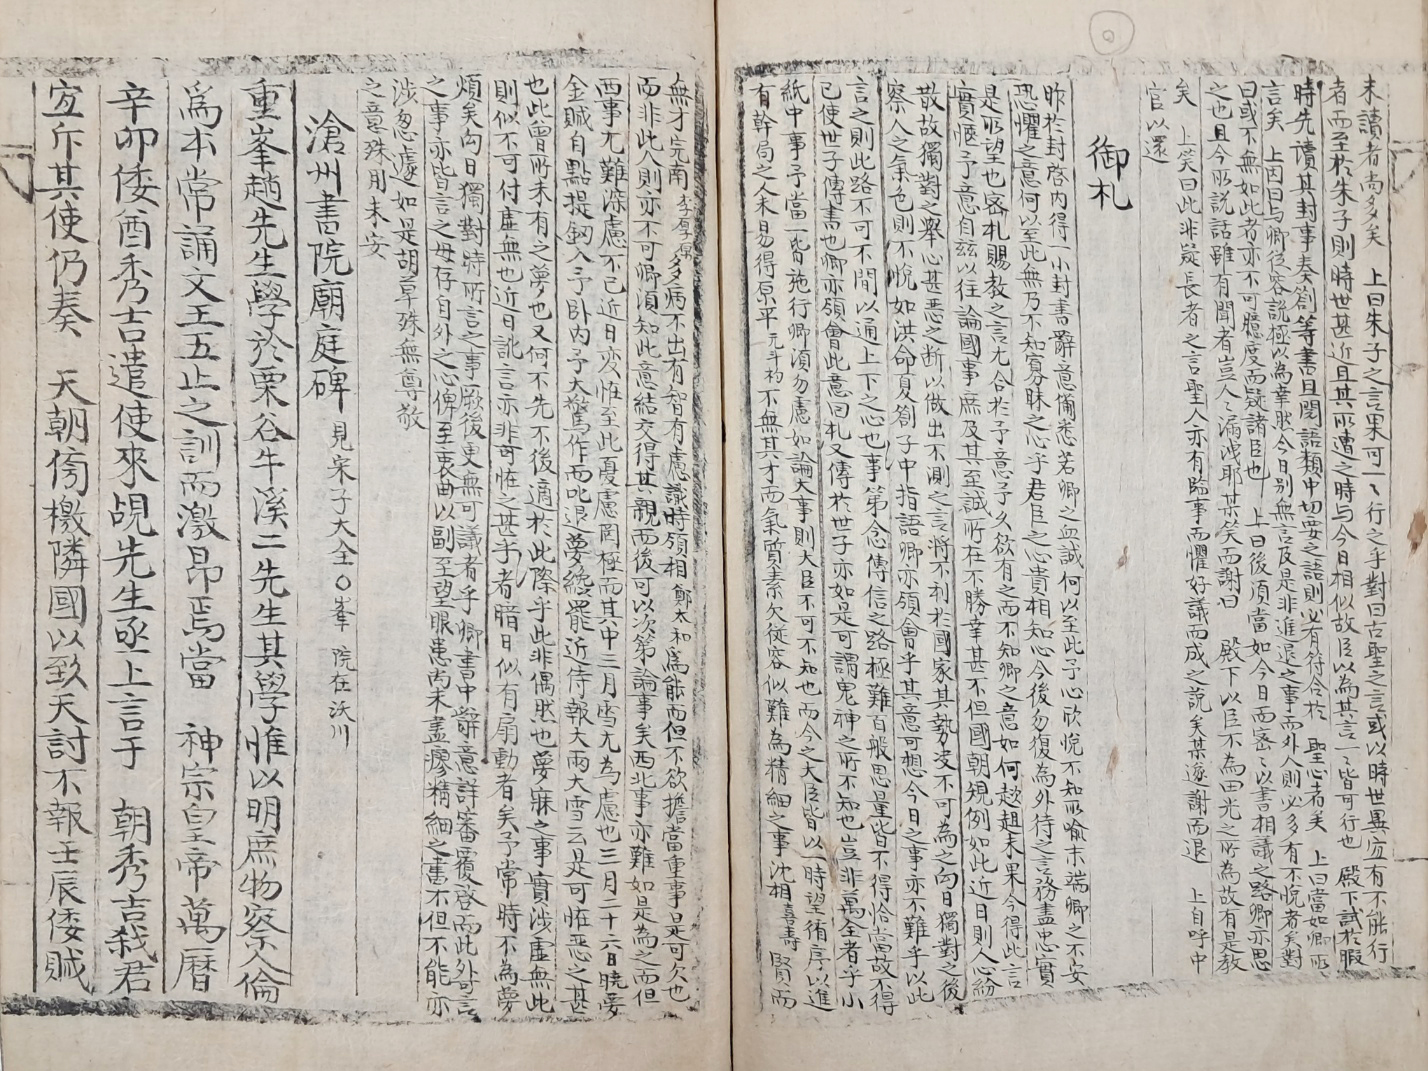 未讀者尚多矣　上曰朱子之言果可一〻行之乎對曰古聖之言或以時世異宜有不能行
者而至於朱子則時世甚近且其所遭之時与今日相似故臣以為其言一一皆可行也　殿下試於暇
時先讀其封事奏箚等書且閱語類中切要之語則必有符合於　聖心者矣　上曰當如卿所
言矣　上因曰与卿從容說極以為幸耿今日別無言及是非進退之事而外人則必多有不悅者矣對
曰或不無如此者亦不可臆度而疑諸臣也　上曰後須當如今日而密〻以書相議之路卿亦思
之也且今所說話雖有聞者豈人〻漏洩耶某笑而謝曰　殿下以臣不為田光之所為故有是教
矣　上笑曰此非疑長者之言聖人亦有臨事而懼好謀而成之說矣某遂謝而退　上自呼中
官以還
御札
昨於封啓內得一小封書辭意備悉若卿之血誠何以至此予心欣悅不知所喻末端卿之不安
恐懼之意何以至此無乃不知寡昧之心乎君臣之心貴相知心今後勿復為外待之言務盡忠實
是所望也密札賜教之言尤合於予意予久欲有之而不知卿之意如何趑趄未果今得此言
實愜予意自茲以往論國事庶及其至誠所在不勝幸甚不但國朝規例如此近日則人心紛
散故獨對之舉心甚惡之斷以做出不測之言將不利於國家其勢决不可為之向日獨對之後
察人之氣色則不悅如洪命夏箚子中指語卿亦領會乎其意可想今日之事亦不難乎以此
言之則此路不可不開以通上下之心也事第念傳信之路極難百般思量皆不得恰當故不得
已使世子傳書也卿亦領會此意回札又傳於世子亦如是可謂鬼神之所不知也豈非萬全者乎小
紙中事予當一皆施行卿須勿慮如論大事則大臣不可不知也而今之大臣皆以一時望循序以進
有幹局之人未易得原平元斗杓不無其才而氣質素欠從容似難為精細之事沈相喜壽賢而
無才完南李厚源多病不出有智有慮識時領相鄭太和為能而但不欲擔當重事是可欠也
而非此人則亦不可卿須知此意結交得其親而後可以次第論事矣西北事亦難如是為之而但
西事尤難深慮不已近日灾怪至此憂慮罔極而其中三月雪尤為慮也三月二十六日曉夢
金賊自點提釰入予卧內予大驚作而叱退夢纔罷近侍報大雨大雪云是可怪惡之甚
也此曾所未有之夢也又何不先不後適於此際乎此非偶然也夢寐之事實涉虛無此
則似不可付虛無也近日訛言亦非奇怪之甚乎者暗日似有扇動者矣予常時不為夢
煩矣向日獨對時所言之事厥後更無可議者乎卿書中辭意詳審覆啓而此外奇言
之事亦皆言之毋存自外之心俾至衷曲以副至望眼患尚未盡瘳精細之書不但不能亦
涉忽遽如是胡草殊無尊敬
之意殊用未安
滄州書院廟庭碑　見宋子大全○峯　院在沃川
重峯趙先生學於栗谷牛溪二先生其學惟以明庶物察人倫
為本常誦文王五止之訓而激昂焉當　神宗皇帝萬曆
辛卯倭酋秀吉遣使來覘先生亟上言于　朝秀吉弒君
宜斥其使仍奏　天朝傍檄隣國以致天討不報壬辰倭賊